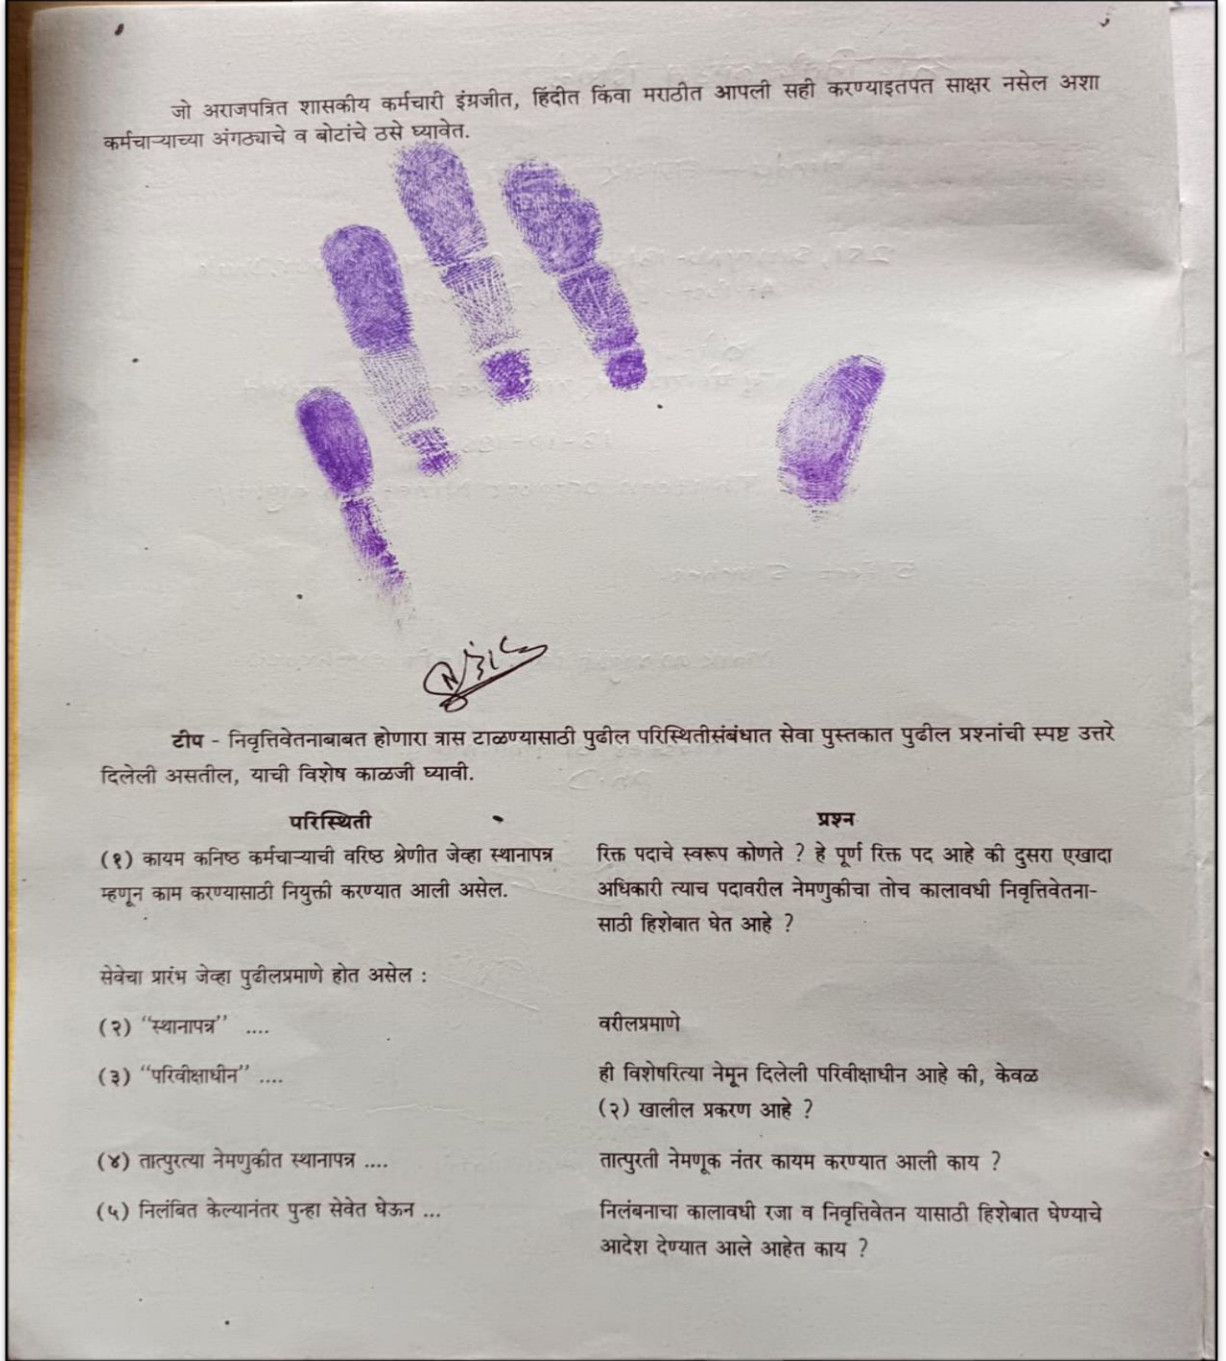 जो अराजपत्रित शासकीय कर्मचारी इंग्रजीत, हिंदीत किंवा मराठीत आपली सही करण्याइतपत साक्षर नसेल अशा
कर्मचाऱ्याच्या अंगठ्याचे व बोटांचे ठसे घ्यावेत.
टीप - निवृत्तिवेतनाबाबत होणारा त्रास टाळण्यासाठी पुढील परिस्थितीसंबंधात सेवा पुस्तकात पुढील प्रश्नांची स्पष्ट उत्तरे
दिलेली असतील, याची विशेष काळजी घ्यावी.
परिस्थिती
प्रश्न
(१) कायम कनिष्ठ कर्मचाऱ्याची वरिष्ठ श्रेणीत जेव्हा स्थानापन्न
म्हणून काम करण्यासाठी नियुक्ती करण्यात आली असेल.
रिक्त पदाचे स्वरूप कोणते ? हे पूर्ण रिक्त पद आहे की दुसरा एखादा
अधिकारी त्याच पदावरील नेमणुकीचा तोच कालावधी निवृत्तिवेतना-
साठी हिशेबात घेत आहे ?
सेवेचा प्रारंभ जेव्हा पुढीलप्रमाणे होत असेल :
(२) "स्थानापन्न" ....
वरीलप्रमाणे
(३) "परिवीक्षाधीन" ....
ही विशेषरित्या नेमून दिलेली परिवीक्षाधीन आहे की, केवळ
(२) खालील प्रकरण आहे ?
(४) तात्पुरत्या नेमणुकीत स्थानापन्न ....
तात्पुरती नेमणूक नंतर कायम करण्यात आली काय ?
(५) निलंबित केल्यानंतर पुन्हा सेवेत घेऊन ...
निलंबनाचा कालावधी रजा व निवृत्तिवेतन यासाठी हिशेबात घेण्याचे
आदेश देण्यात आले आहेत काय ?